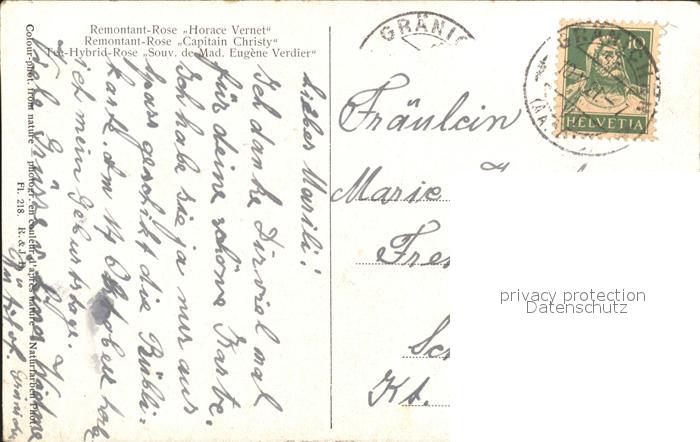 Remontant-Rose „Horace Vernet“
Remontant-Rose „Capitain Christy“
Tea-Hybrid-Rose „Souv. de Mad. Eugène Verdier“
Colour-phot. from nature — photogr. en couleur d'après nature — Naturfarben-Phot.
Fl. 218. R. & J. D.
Liebes Marili!
Ich danke Dir viel mal
für deine schöne Karte.
Ich habe sie ja nur aus
Spass geschikt die Rübli-
karte. Am 14 Oktober hab
ich mein Geburtstag.
Viele Grüsse
GRÄNICHEN
10
HELVETIA
Fräulein
Marie
Fre
Sc
Kt.
privacy protection
Datenschutz